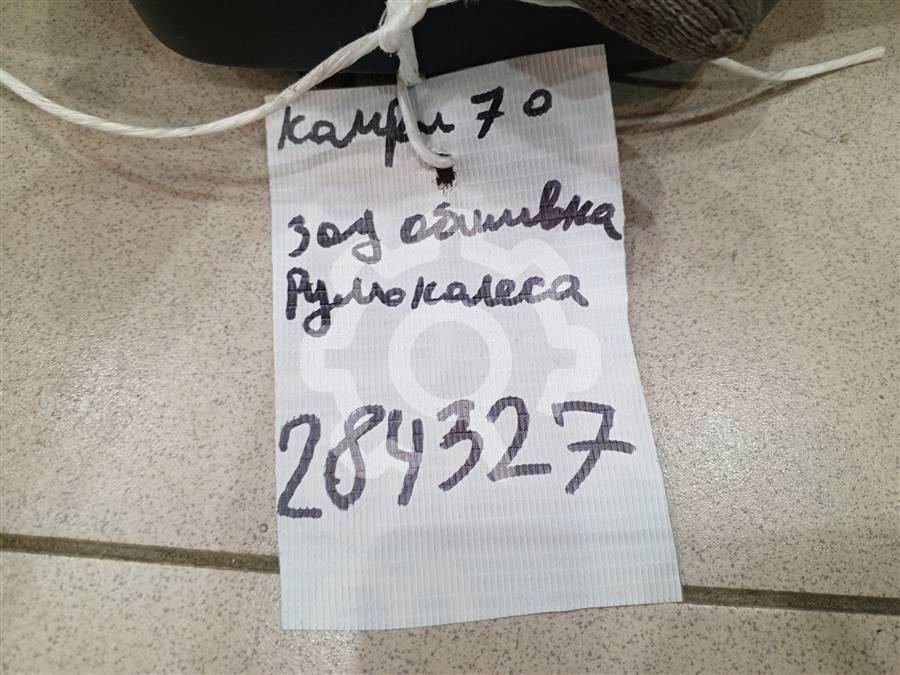 Камри 70
зад обшивка
Рульокалеса
284327